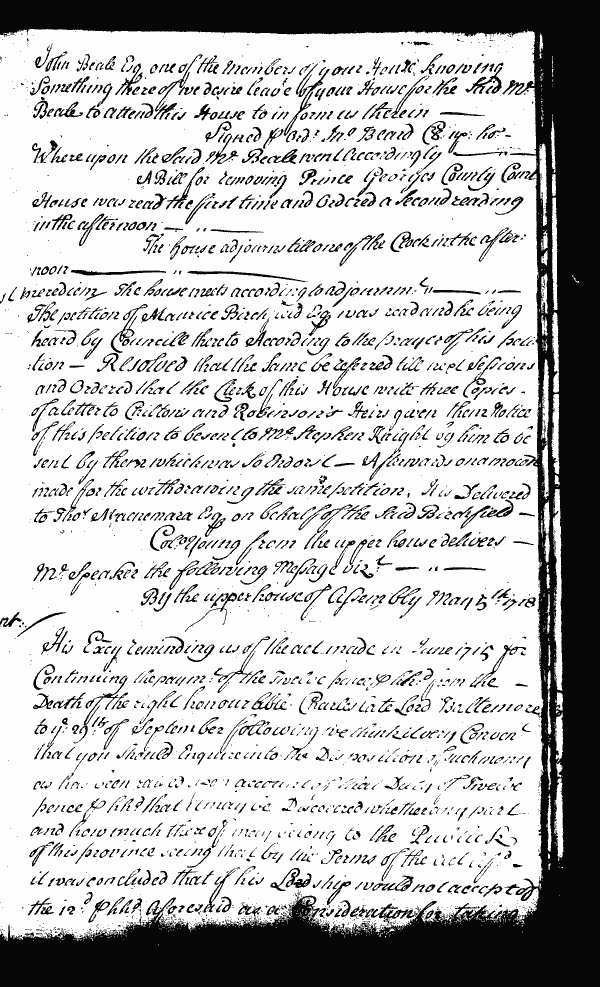 John Beale Esq. one of the Members of your House knowing
Something there of we desire leave of your House for the Said Mr.
Beale to attend this House to inform us therein —
Signed p Ord.r Jno Beard Cl up. ho.
Where upon the Said Mr. Beale went Accordingly —
A Bill for removing Prince Georges County Court
House was read the first time and Ordered a Second reading
in the afternoon — „ —
The house adjourns till one of the Clock in the after:
noon — „ —
merediem The house meets according to adjournm.t „ — „ —
The petition of Maurice Birchfield Esq. was read and he being
heard by Councill thereto According to the prayer of his peti
tion — Resolved that the Same be referred till next Sessions
and Ordered that the Clerk of this House write three Copies
of a letter to Chiltons and Robinson's Heirs given them Notice
of this petition to be sent to Mr. Stephen Knight by him to be
sent by them which was So Endors't — Afterwards on a motion
made for the withdrawing the same petition. It is Delivered
to Thos. Macnemara Esq. on behalf of the Said Birchfield —
Colo. Young from the upper house delivers —
Mr. Speaker the following Message viz.t — „ —
By the upper house of Assembly May 5th 1718
His Excy reminding us of the act made in June 1715 for
Continuing the paym.t of the Twelve pence p hhd from the —
Death of the right honourable Charles late Lord Baltemore
to ye 29th of September following we think it very Conven.t
that you Should Enquire into the Disposition of such mony
as has been raised upon account of that Duty of Twelve
pence p hhd that it may be Discovered whether any part
and how much there of may belong to the Publick
of this province seeing that by the Terms of the act afsd —
it was concluded that if his Lordship would not accept of
the 12d p hhd Aforesaid as a Consideration for taking